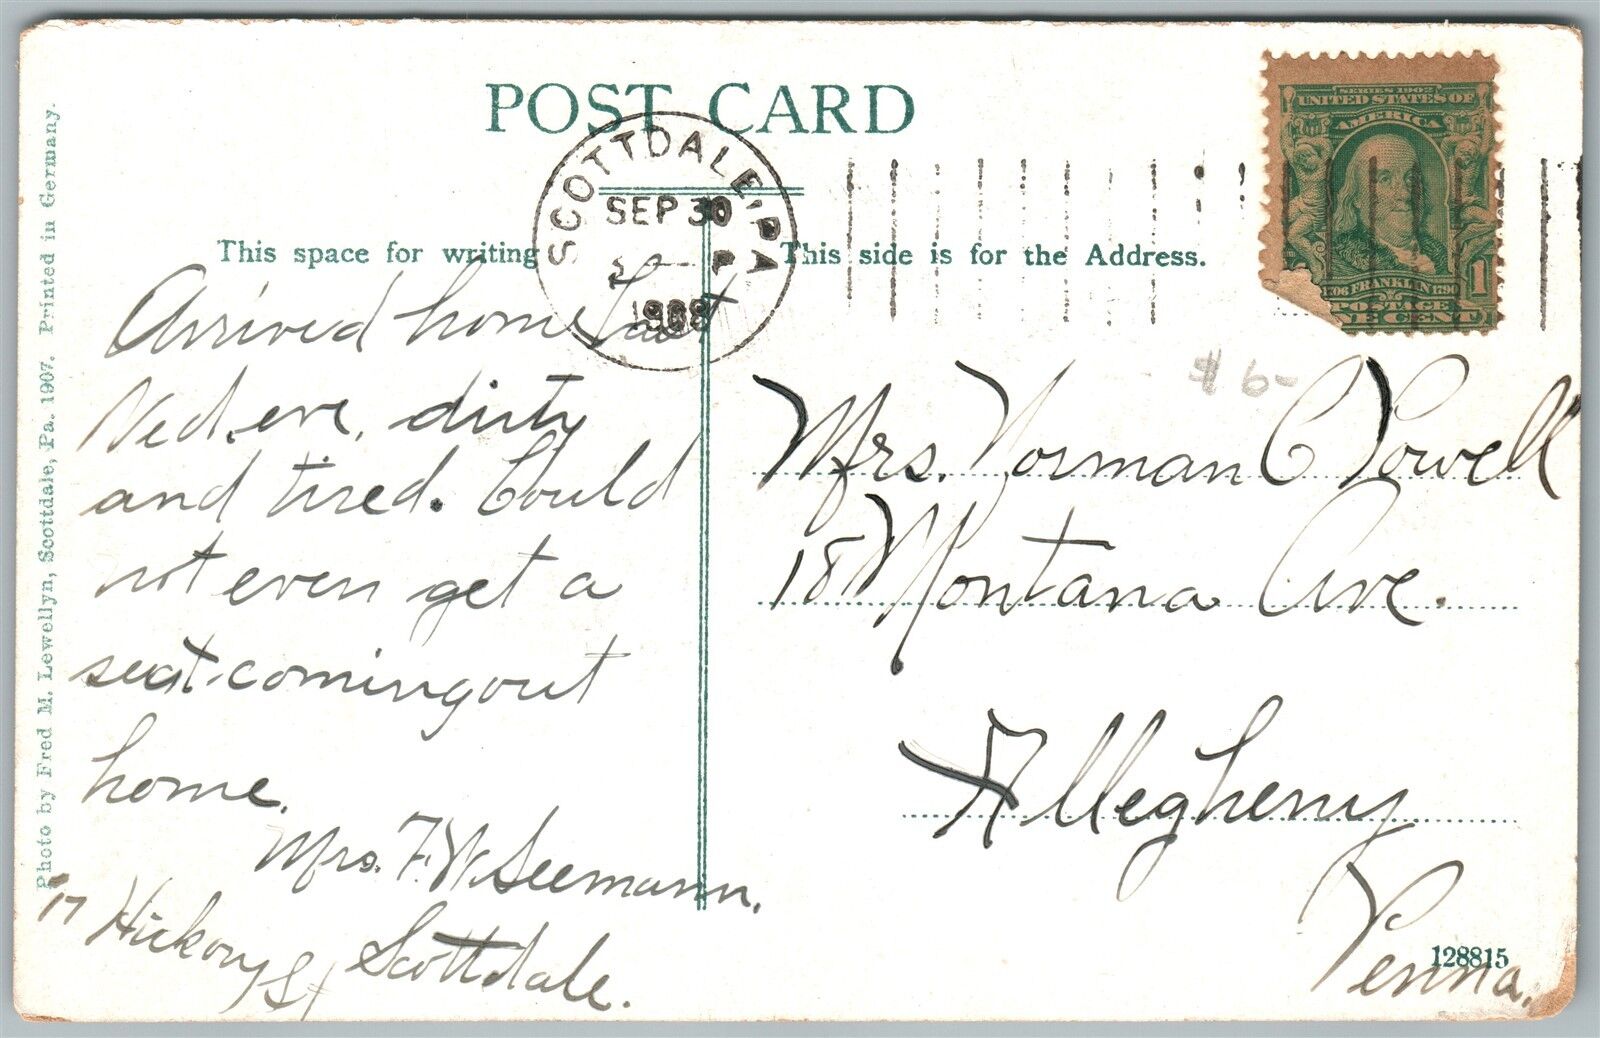 POST CARD
SERIES 1902
UNITED STATES OF
AMERICA
FRANKLIN 1790
POSTAGE
1
SCOTTDALE, PA
SEP 30
1908
This space for writing
This side is for the Address.
Arrived home last
Wed. eve, dirty
and tired. Could
not even get a
seat coming out
home.
Mrs. F. W. Seemann.
17 Hickory St Scottdale.
$6-
Mrs. Norman C Powell
18 Montana Ave.
Allegheny
Penna.
128815
Photo by Fred M. Lewellyn, Scottdale, Pa. 1907. Printed in Germany.